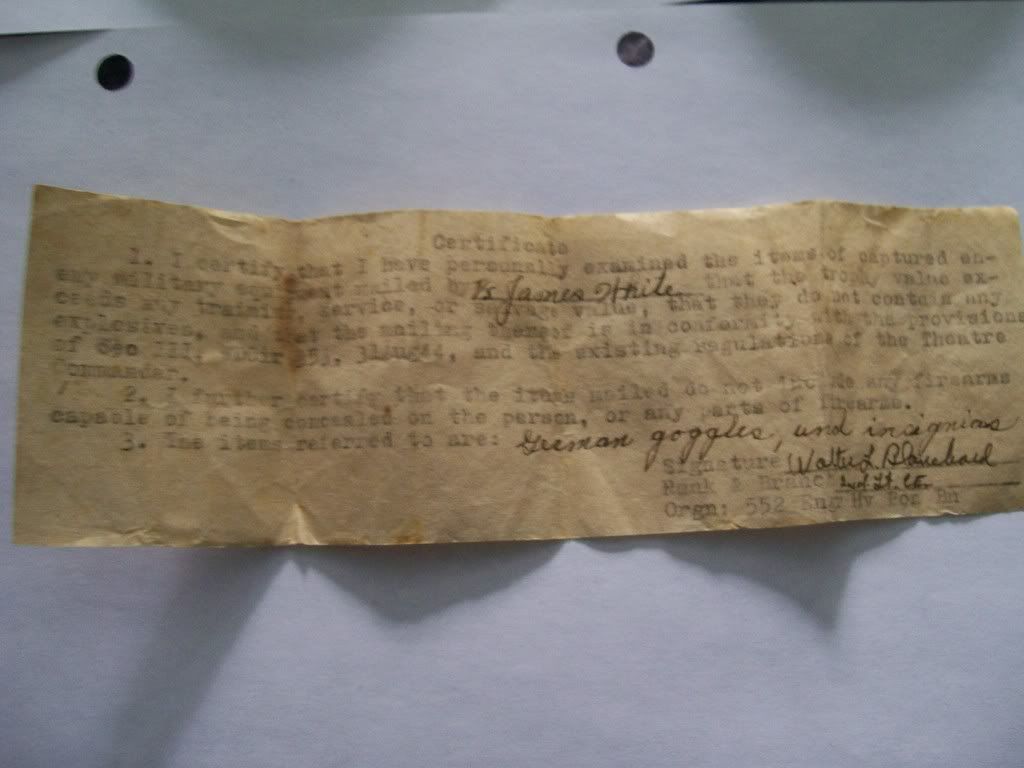 Certificate
1. I certify that I have personally examined the items of captured en-
emy military equipment mailed by James White that the trophy value ex-
ceeds any training, service, or salvage value, that they do not contain any
explosives, and that the mailing thereof is in conformity with the provisions
of Sec III, 31Aug44, and the existing regulations of the Theatre
Commander.
2. I further certify that the items mailed do not include any firearms
capable of being concealed on the person, or any parts of firearms.
3. The items referred to are: German goggles, and insignias
Signature Walter L. Blanchard
Rank & Branch 2nd Lt. CE
Orgn: 552 Eng Hv Pon Bn